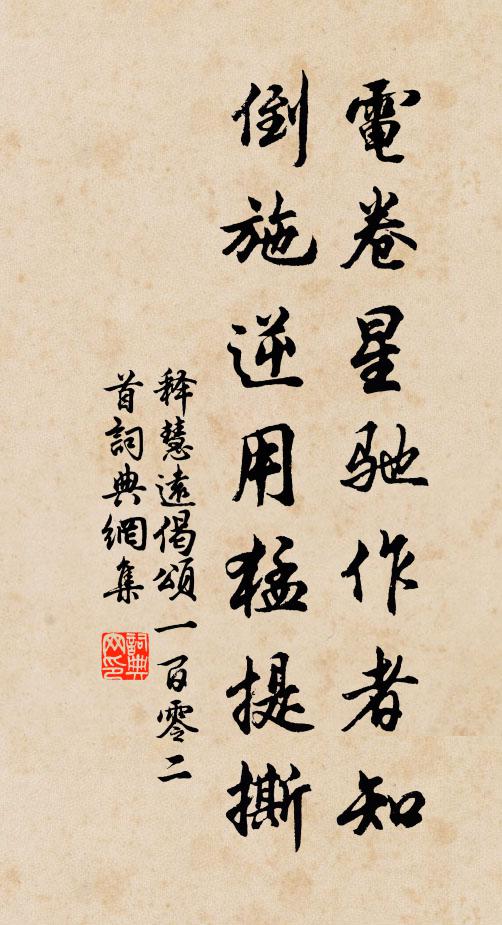 電卷星馳作者知
倒施逆用猛提撕
释慧遠偈頌一百零二
首詞典網集
詞典
网印